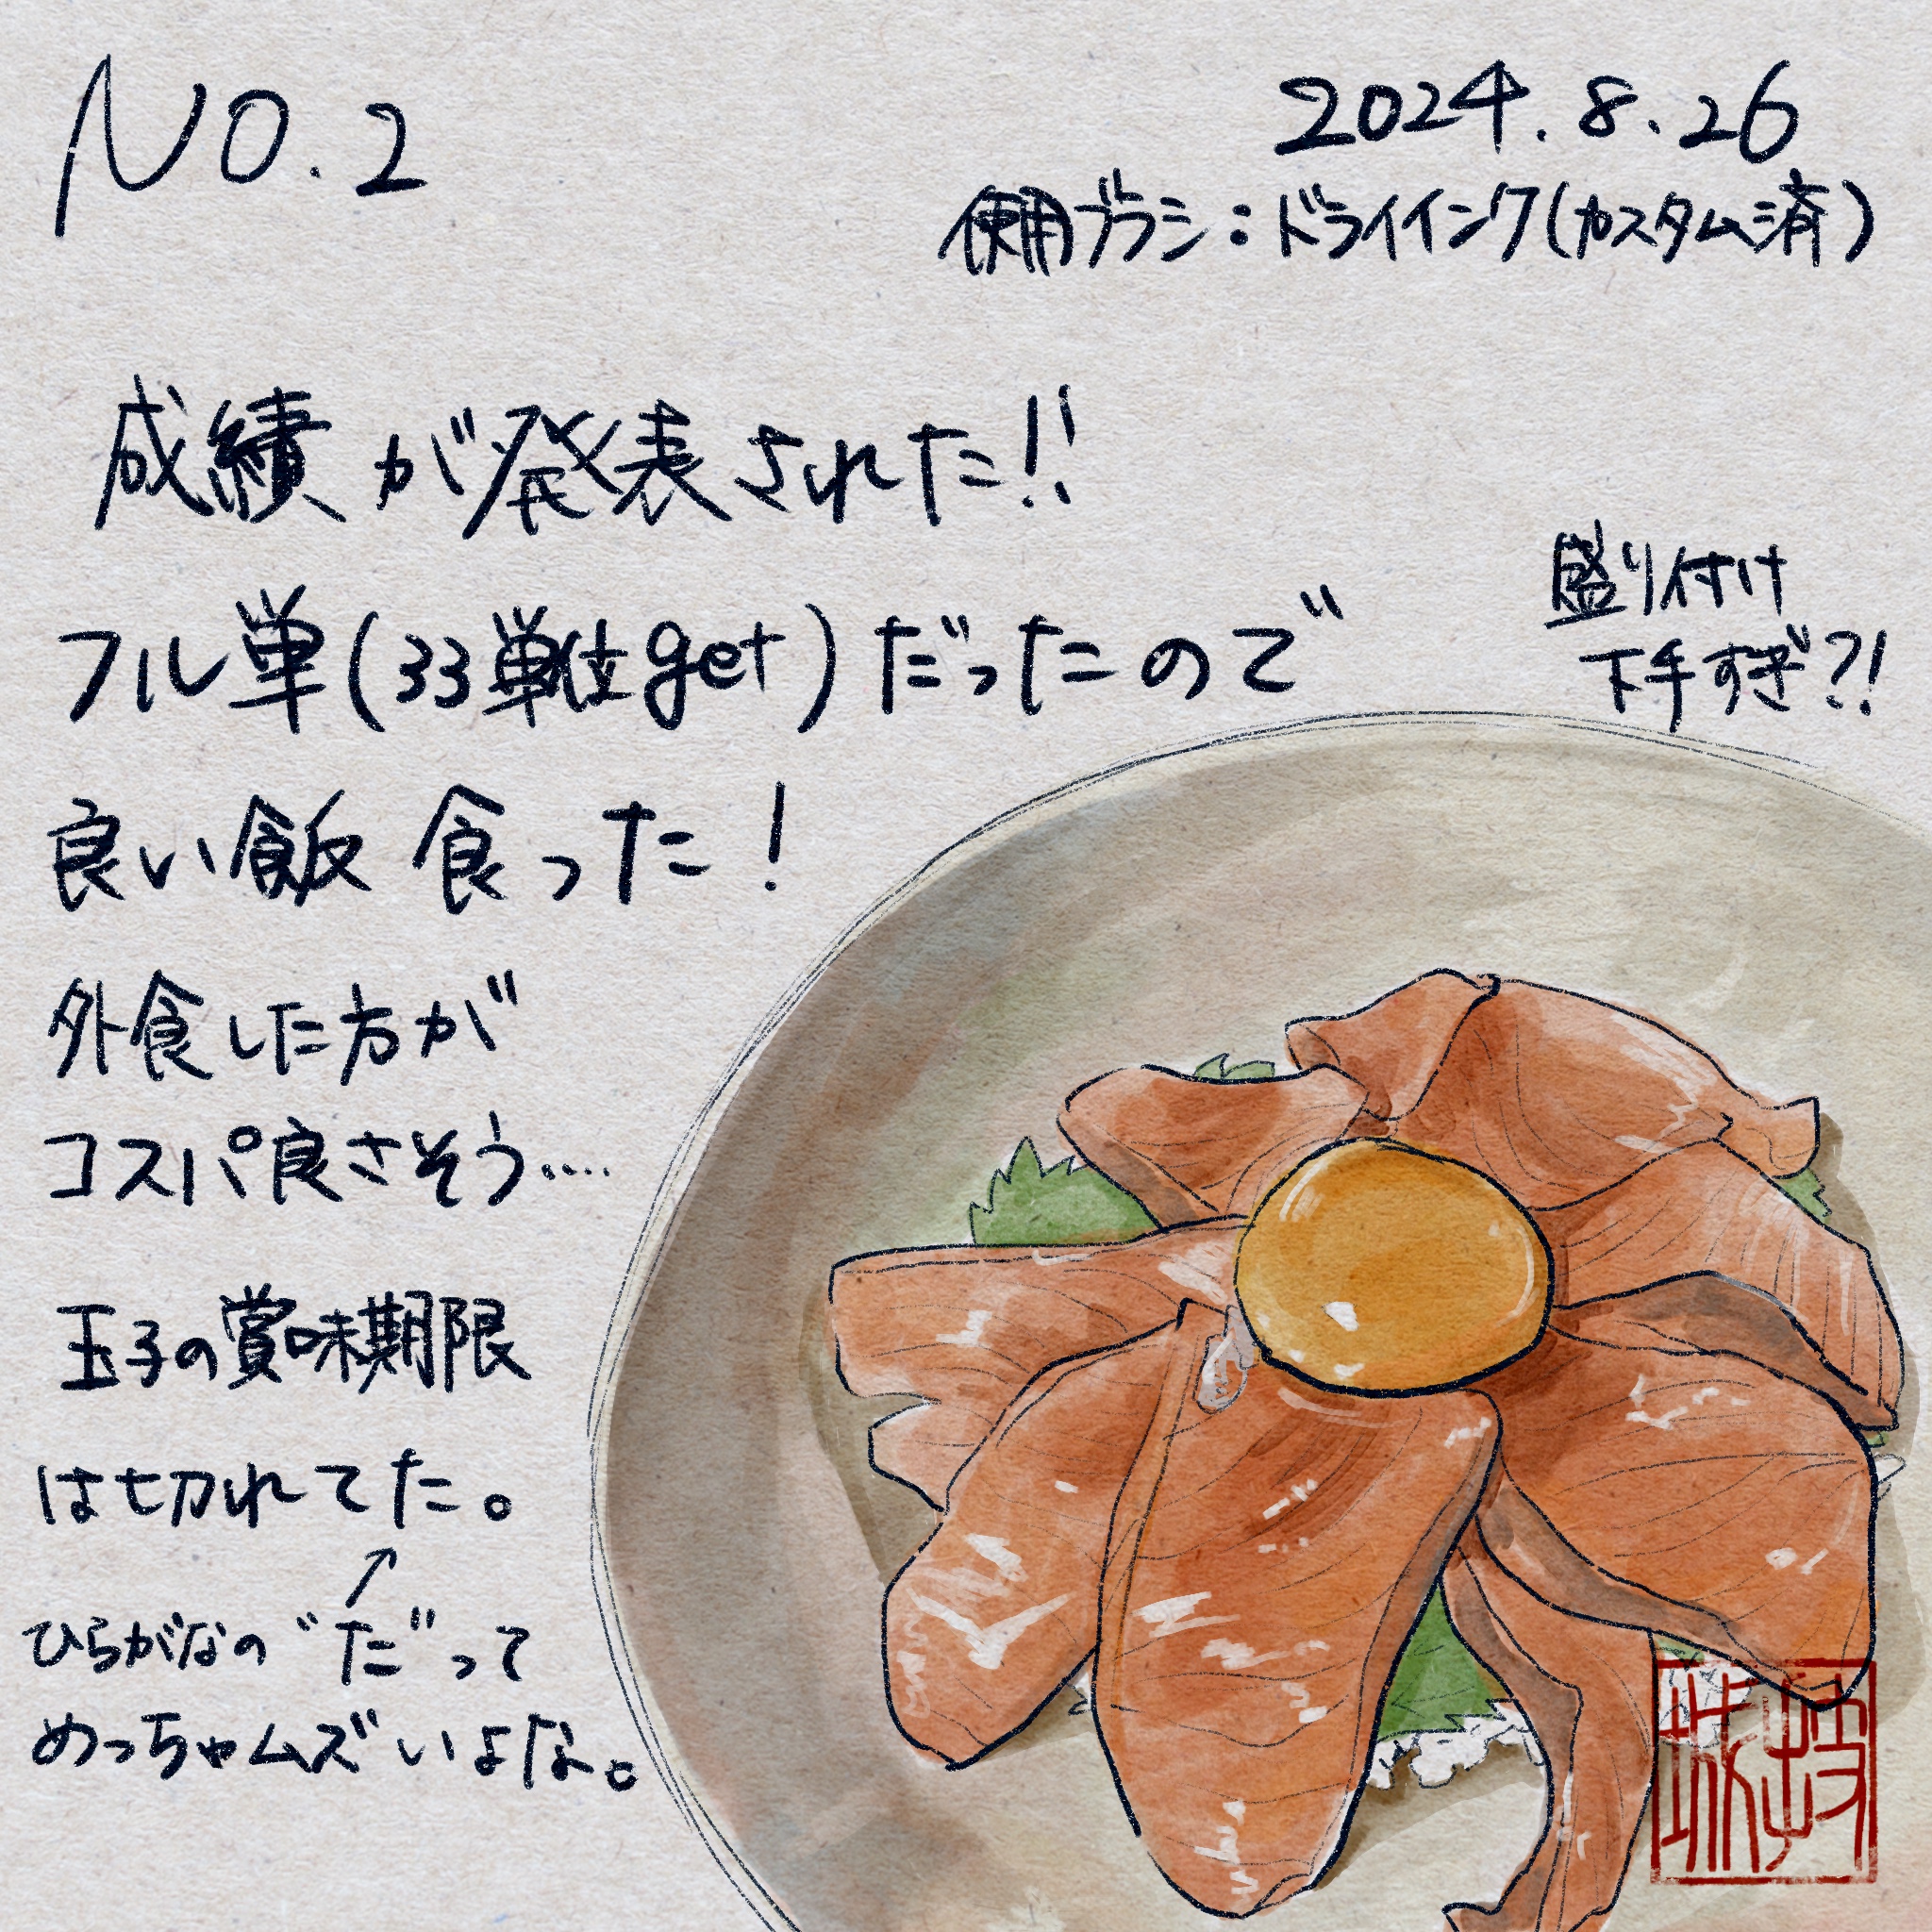 NO.2
2024.8.26
使用ブラシ：ドライインク(カスタム済)
成績が発表された!!
フル単(33単位get)だったので
良い飯食った！
盛り付け
下手すぎ?!
外食した方が
コスパ良さそう‥‥
玉子の賞味期限
は切れてた。
↗
ひらがなの“た”って
めっちゃムズいよな。